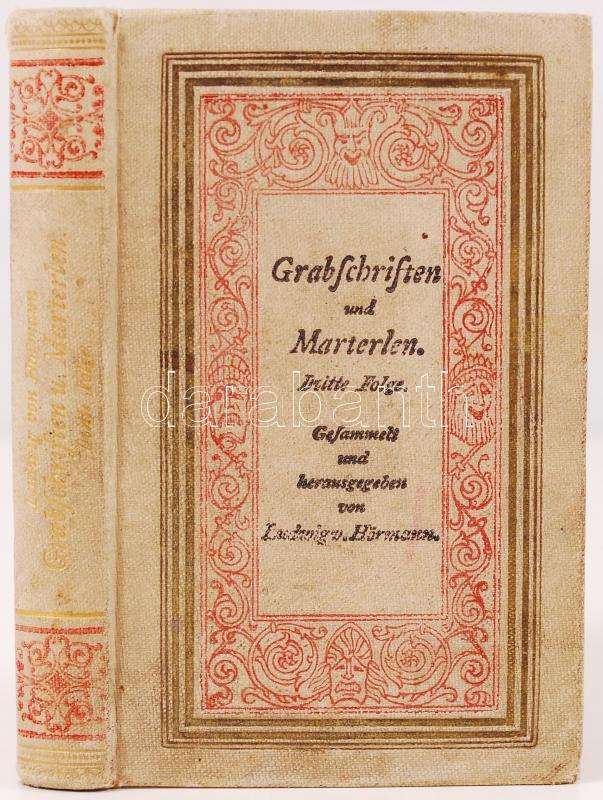 Grabſchriften
und
Marterlen.
Dritte Folge.
Geſammelt
und
herausgegeben
von
Ludwig v. Hörmann.
Ludwig von Hörmann
Grabſchriften u. Marterlen.
Dritte Folge.
darabanth